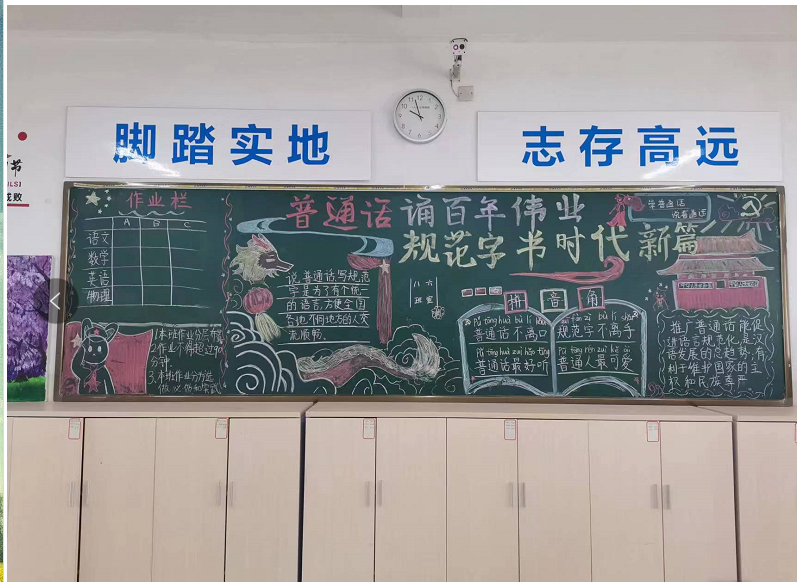 脚踏实地
志存高远
节
成败
作业栏
A B C
语文
数学
英语
物理
1.本班作业分层布置
2.作业不得超过90
分钟.
普通话 诵百年伟业
规范字 书时代新篇
说普通话,写规范
字是为了有个统一
的语言,方便全国
各地不同地方的人交
流顺畅.
八六
班
拼音角
pǔ tōng huà bù lí kǒu
普通话不离口
规范字不离手
pǔ tōng huà zuì hǎo tīng
普通话最好听
pǔ tōng rén zuì kě ài
普通人最可爱
学普通话
说普通话
推广普通话能促
进语言规范化,是汉
语发展的总趋势,有
利于维护国家的主
权和民族尊严